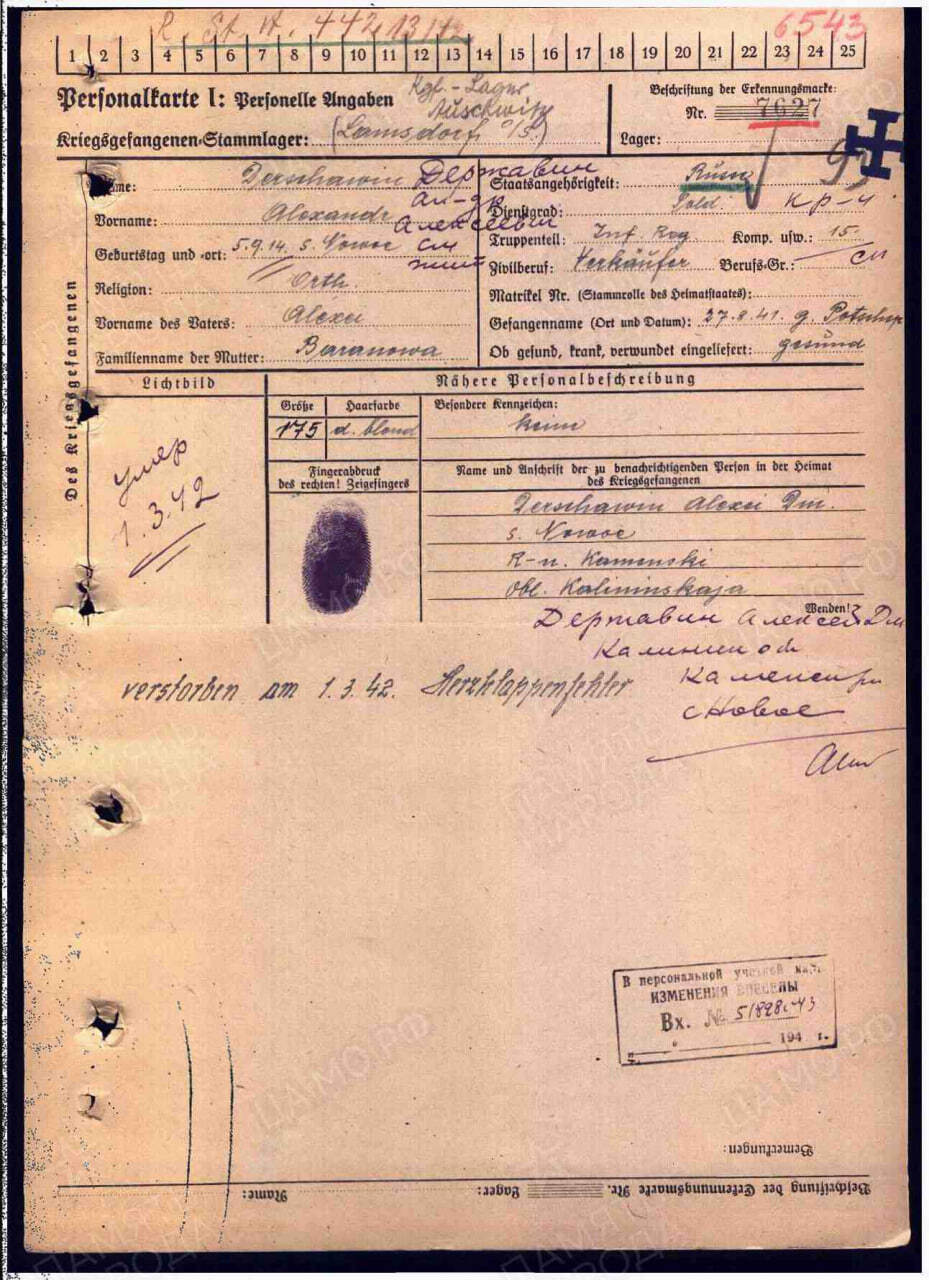 6543
1 2 3 4 5 6 7 8 9 10 11 12 13 14 15 16 17 18 19 20 21 22 23 24 25
Personalkarte I: Personelle Angaben
Kgf.-Lager
Auschwitz
Beschriftung der Erkennungsmarke:
Nr. 7627
Kriegsgefangenen-Stammlager: (Lamsdorf O/S)
Lager:
Des Kriegsgefangenen
Name: Derschawin Державин
Staatsangehörigkeit: Russe
Ал-др
Vorname: Alexandr
Алексеевич
Dienstgrad: Sold. кр-ц
Truppenteil: Inf. Reg. Komp. usw.: 15.
Geburtstag und -ort: 5.9.14 s. Nowoe
Zivilberuf: Verkäufer Berufs-Gr.:
Religion: Orth.
Matrikel Nr. (Stammrolle des Heimatstaates):
Vorname des Vaters: Alexei
Gefangenname (Ort und Datum): 27.8.41. g.
Familienname der Mutter: Baranowa
Ob gesund, krank, verwundet eingeliefert: gesund
Lichtbild
Nähere Personalbeschreibung
Größe Haarfarbe
Besondere Kennzeichen:
175 d. blond
keine
умер
1.3.42
Fingerabdruck
des rechten! Zeigefingers
Name und Anschrift der zu benachrichtigenden Person in der Heimat
des Kriegsgefangenen
Derschawin Alexei Dm.
s. Nowoe
R-n. Kamenski
Obl. Kalininskaja
Wenden!
Державин Алексей Дм
Калинин обл
Каменс рн
с Новое
verstorben am 1.3.42. Herzklappenfehler
В персональной учетной карт.
ИЗМЕНЕНИЯ ВНЕСЕНЫ
Вх. № 51828с-43
194 г.
Bemerkungen:
Beschriftung der Erkennungsmarke Nr. Lager: Name: